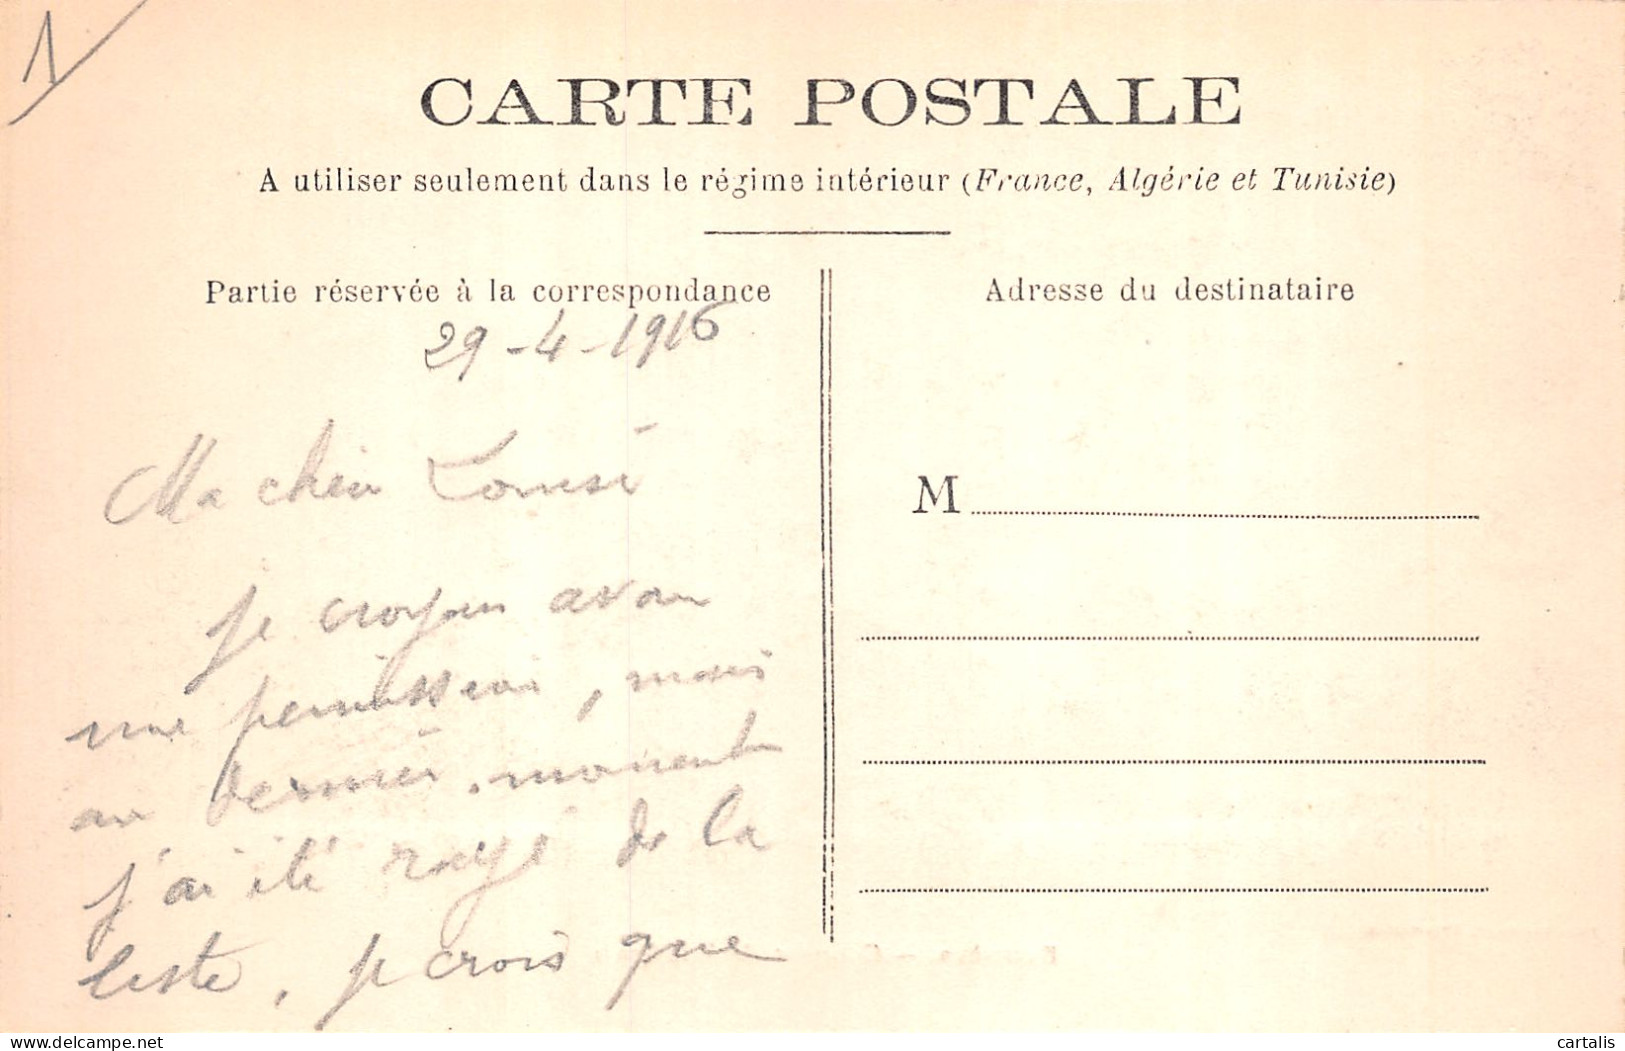 1
CARTE POSTALE
A utiliser seulement dans le régime intérieur (France, Algérie et Tunisie)
Partie réservée à la correspondance
29-4-1916
Ma cher Louise
je croyais avoir
une permission, mais
au dernier moment
j'ai été rayé de la
liste, je crois que
Adresse du destinataire
M
delcampe.net
cartalis